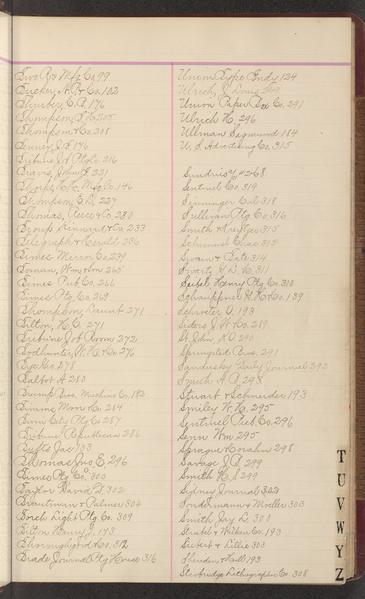 Two Rs Mfg Co. 99
Tucker, A. P. & Co. 102
Thurber, C. A. 176
Thompson, 205
Thompson & Co 208
Tenney, J. F. 176
Tribune Job Ptg Co. 216
Travis, John F. 221
Thorp, Mfg Co. 146
Thompson, E. D. 227
Thomas, Reece & Co. 230
Troup Kennard & Co. 233
Telegraph & Herald 236
Times Mirror Co 239
Toman, Wm & Son 265
Times Pub Co. 266
Times Ptg Co. 268
Thompson, 271
Tilton, H. C. 271
Tribune Job Room 272
Todhunter, & Co 276
278
Talbot A 280
Trump Bros. Machine Co. 182
Tinimo, Co. 284
Twin City Ptg Co 287
Tribune Republican 286
Tufts Jas 133
Thomas Jno E. 296
Times Ptg Co. 300
Taylor David A. 302
Troutmann & Palmer 304
Torch Light Ptg Co. 309
Tilton Henry J. 173
Thoroughgood & Co. 312
Trade Journal Ptg House 316
Union Type Fndy 124
Ulrich, J. 209
Union Paper Box Co. 291
Ulrich H. 296
Ullman Sigmund 184
U. S. Advertising Co. 315
Sundries 268
Sentinel Co. 319
Senninger Col 318
Sullivan Ptg Co 316
Smith & 315
Schimmel Chas 315
Swain & Tate 314
Swartz H. D. Co. 311
Seipel Henry Ptg Co. 310
Schauffner H. Co. 139
Schroeter O, 193
Siders J. W. Co. 289
St. John, 290
Springsted Bros. 291
Sandusky Daily Journal 292
Smith A. A. 298
Stuart & Schneider 193
Smiley W. H. 295
Sentinel Pub Co. 296
Senn Wm 295
Sprague 298
Savage J. A. 299
Smith H. S. 299
Sidney Journal 303
Sondermann & Moeller 303
Smith Jay L. 301
Strable & Co. 193
Siebert & Lillie 303
Sheridan Hall 193
Strobridge Lithographic Co. 308
T
U
V
W
Y
Z